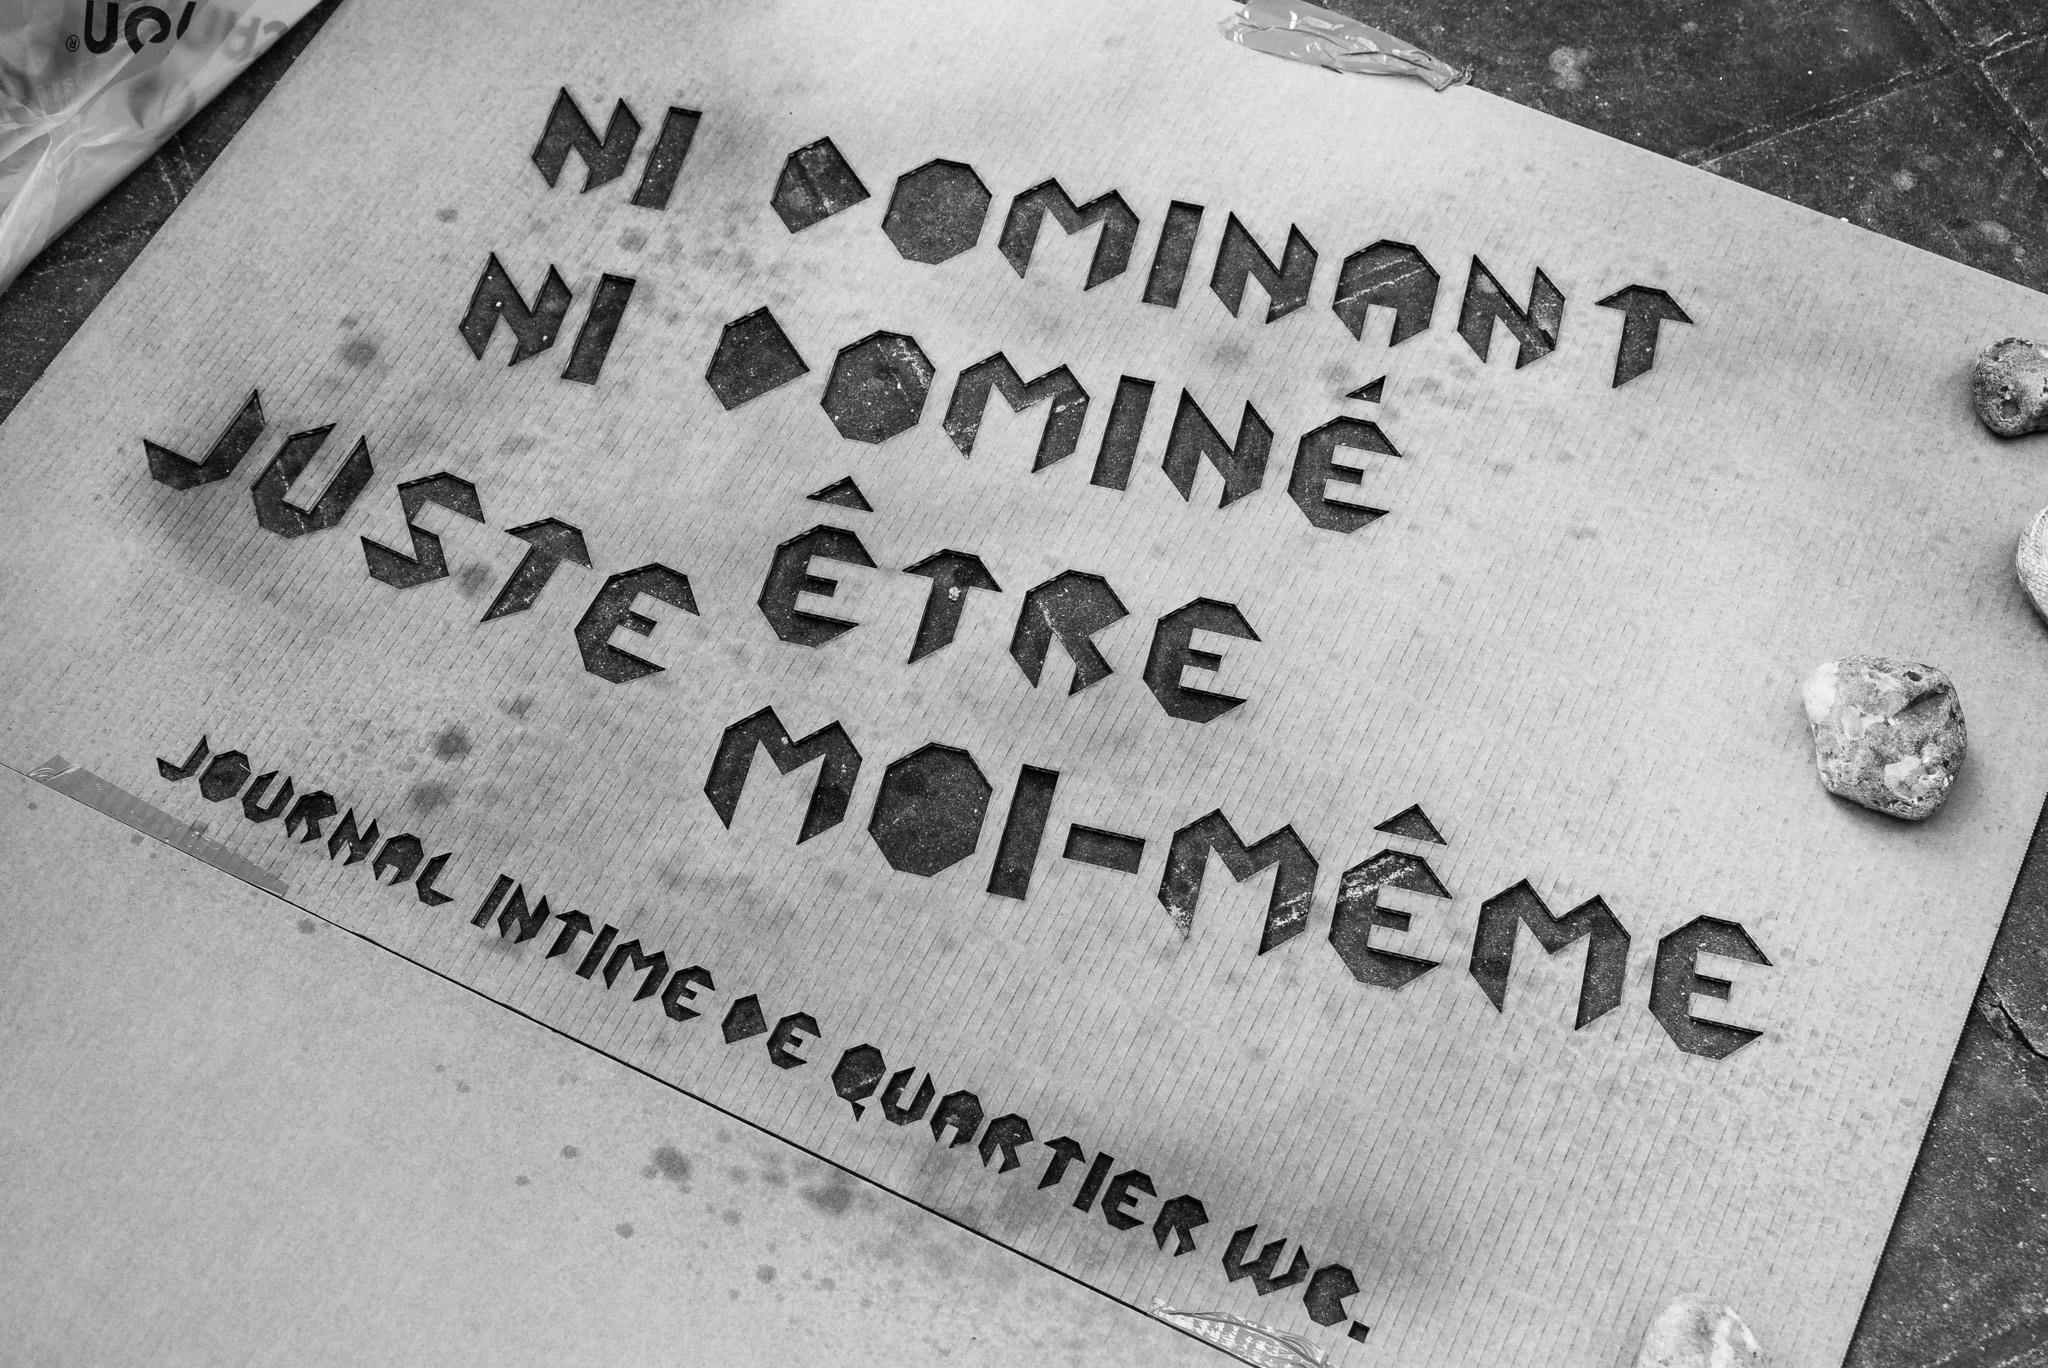 NI DOMINANT
NI DOMINÉ
JUSTE ÊTRE
MOI-MÊME
JOURNAL INTIME DE QUARTIER WC.